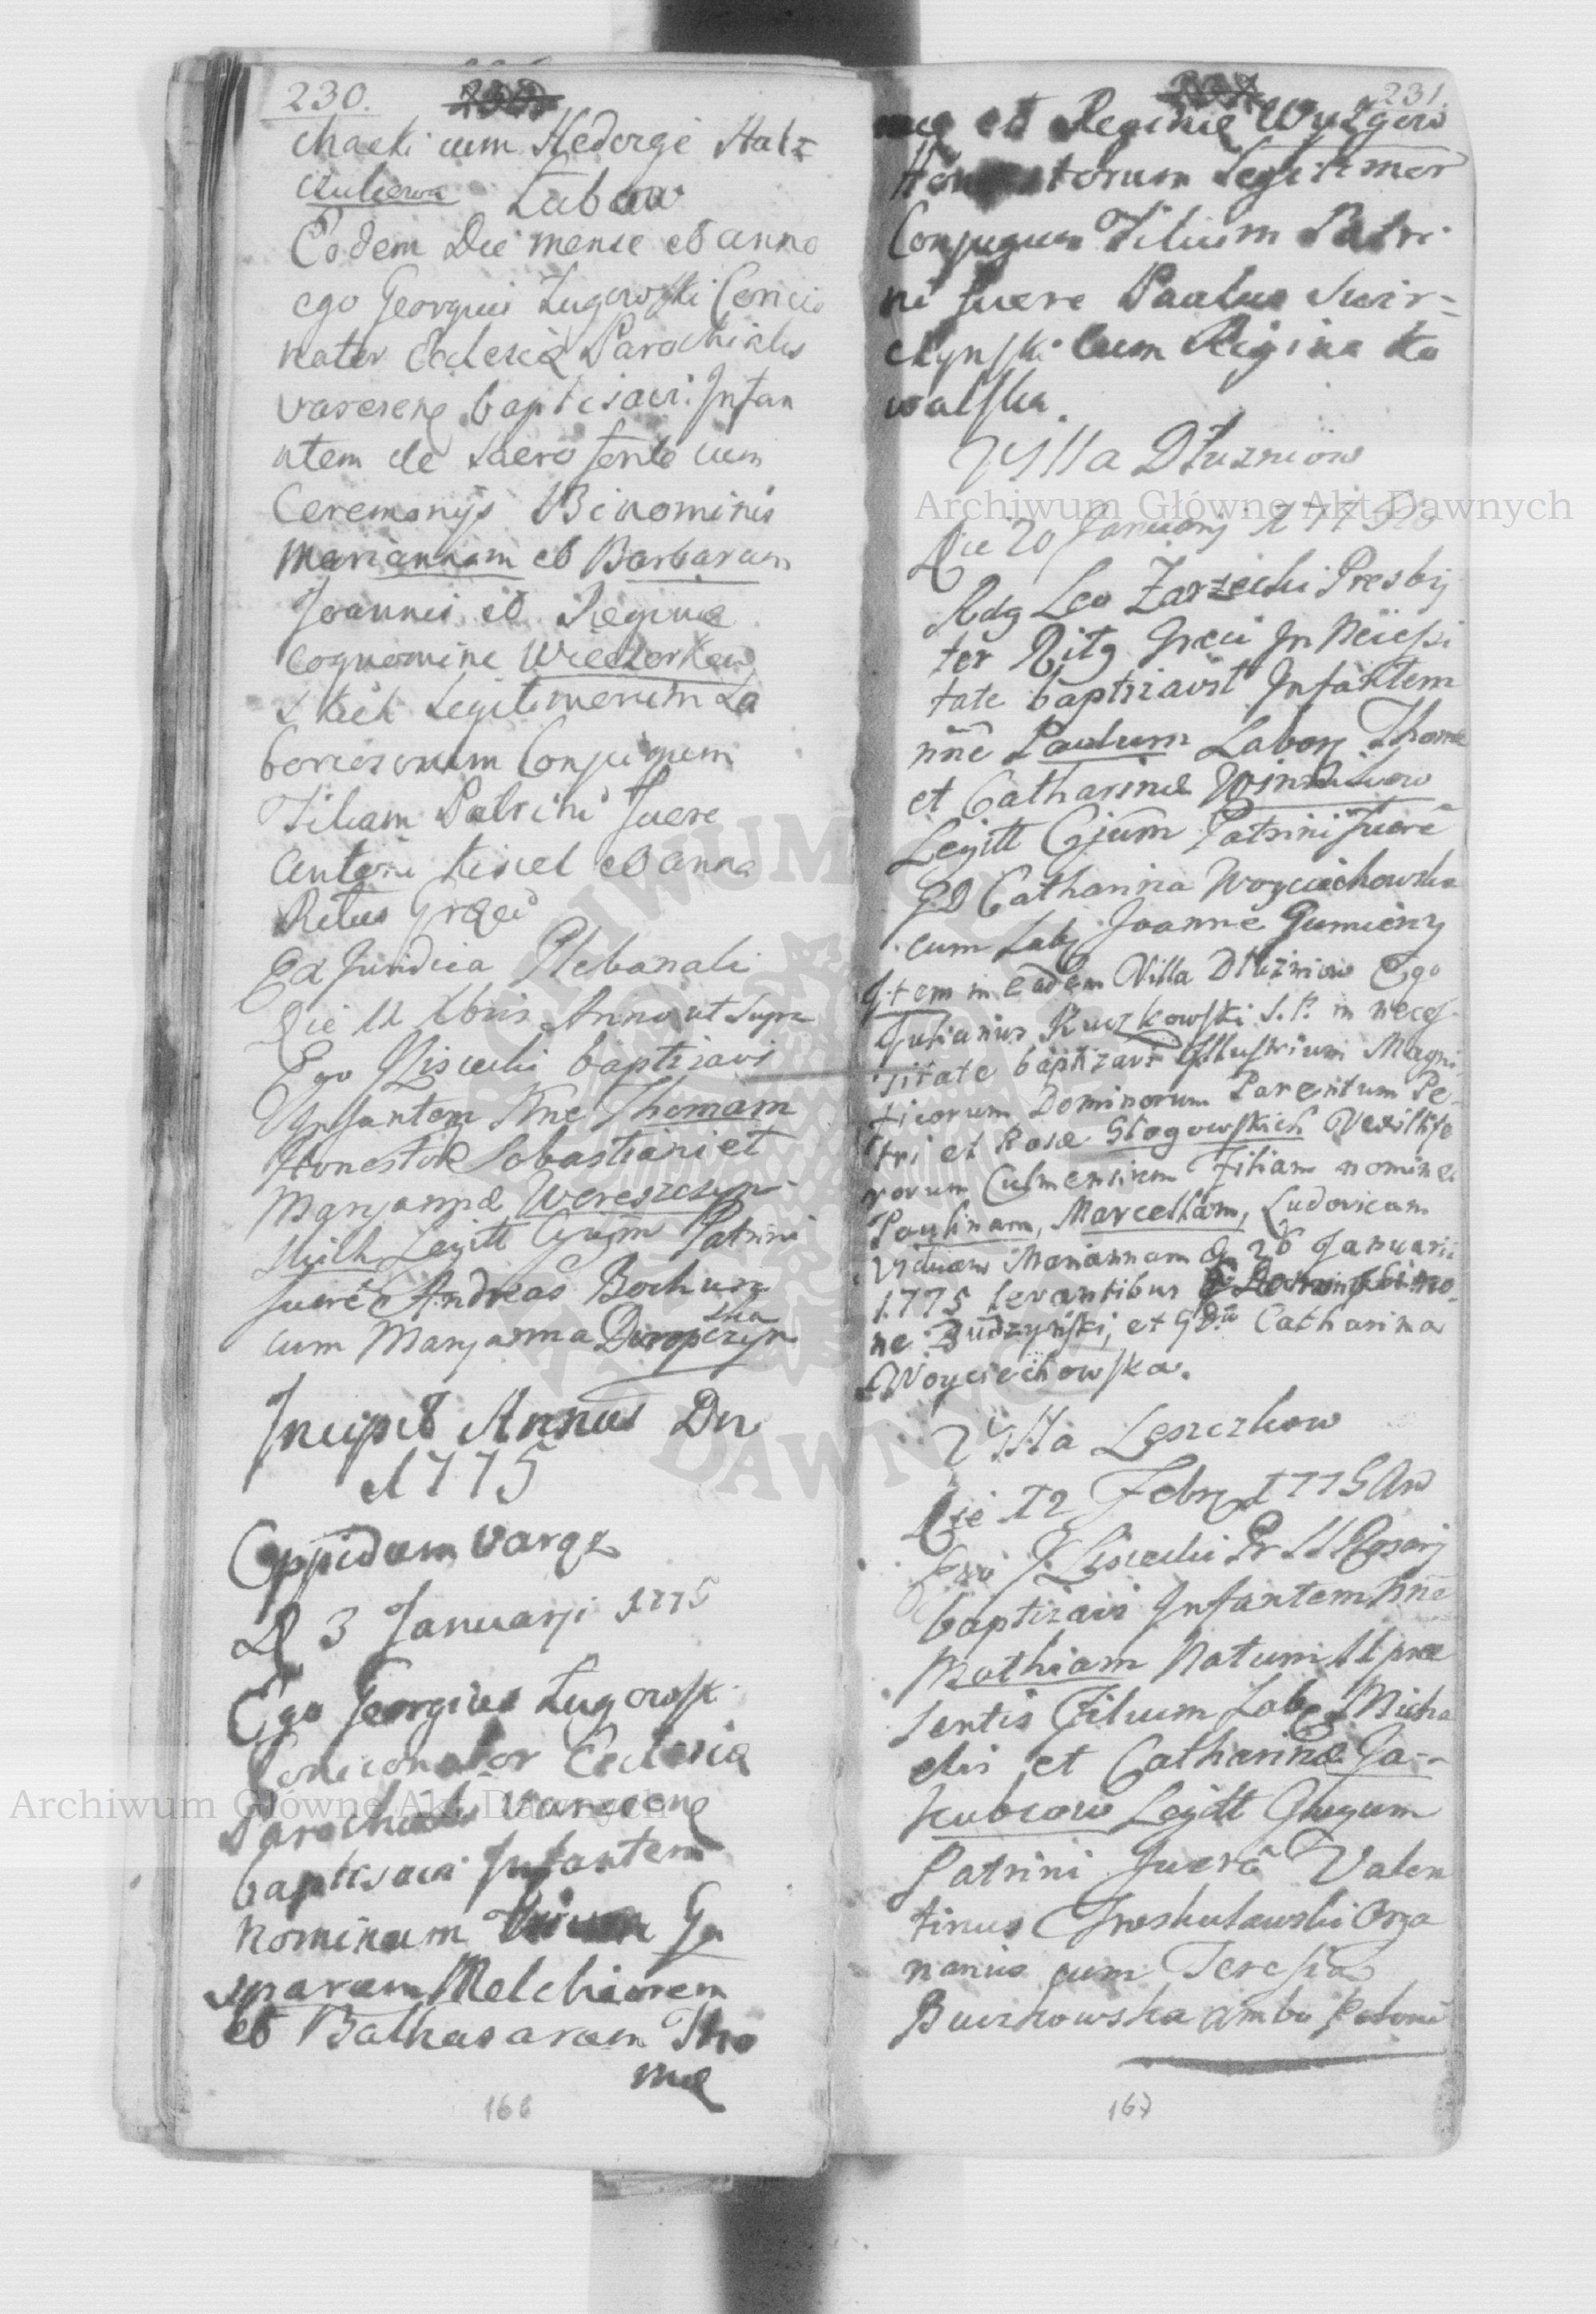 230.
chaeki cum Hedergę Halz
czukowa Labow
Eodem Die mense et anno
ego Georgius Ługowski Concio
nator Eclesię Parochialis
varesenę baptisavi Infan
ntem de Sacro fonte cum
Ceremonijs Binominis
Mariannam et Barbaram
Joannis et Reginæ
cognomine Wieczorkow
skich Legitimorum La
boriosorum Conjugum
Filiam Patrini fuere
Antoni Kisiel et anna
Ritus Gręci
Ex Juridica Plebanali
Die 11 Xbris Anno ut supra
Ego Lisiecki baptizavi
Infantem Nne Thomam
Honestor Sobastiani et
Maryannæ Wereszczyn
skich Legitt Cjugm Patrini
fuere Andreas Bochun
cum Maryanna Doropczyn
ska
Incipit Annus Dn
1775
Oppidum Varęz
D 3 Januarji 1775
Ego Georgius Ługowsk
Concionator Eclesię
Parochialis Varęcenę
baptisavi Infantem
Nominum Ga
sparam Melchiorem
et Balthasaram Tho
mæ
166
231.
mæ et Reginæ Wyżgow
Honestorum Legitimor
Conjugum Filium Patri
ni fuere Paulus Swir=
czynski cum Regina Ko
walska.
Villa Dłużniow
Die 20 Januarij 1775
Rdg Leo Zarzecki Presby
ter Ritg Gręci In Necessi
tate baptizavit Infantem
nne Paulum Labor Thomæ
et Catharinæ
Legitt Cjum Patrini fuere
GD Catharina Woyciechowska
cum Lab Joanne Gumieny
Item in eadem Villa Dłużniow Ego
Julianus Kuczkowski S.P. in neces
sitate baptizavi Illustrium Magni
ficorum Dominorum Parentum Pe-
tri et Rosæ Głogowskich Vexillife
rorum Culmensium Filiam nomine
Paulinam, Marcellam, Ludovicam
Viduam Mariannam D 26 Januarii
1775 levantibus G Domino Simo
ne Budzyński, et GDna Catharina
Woyciechowska.
Villa Leszczkow
Die 12 Febr 1775 Ano
Ego Lisiecki Pr SS Rosarij
baptizavi Infantem Nne
Mathiam Natum 11 præ
sentis Filium Lab Micha
elis et Catharinæ Ja--
kubcow Legitt Cjugum
Patrini fuere Valen
tinus Orga
narius cum Teresia
Buczkowska ambo
167
Archiwum Główne Akt Dawnych
Archiwum Główne Akt Dawnych